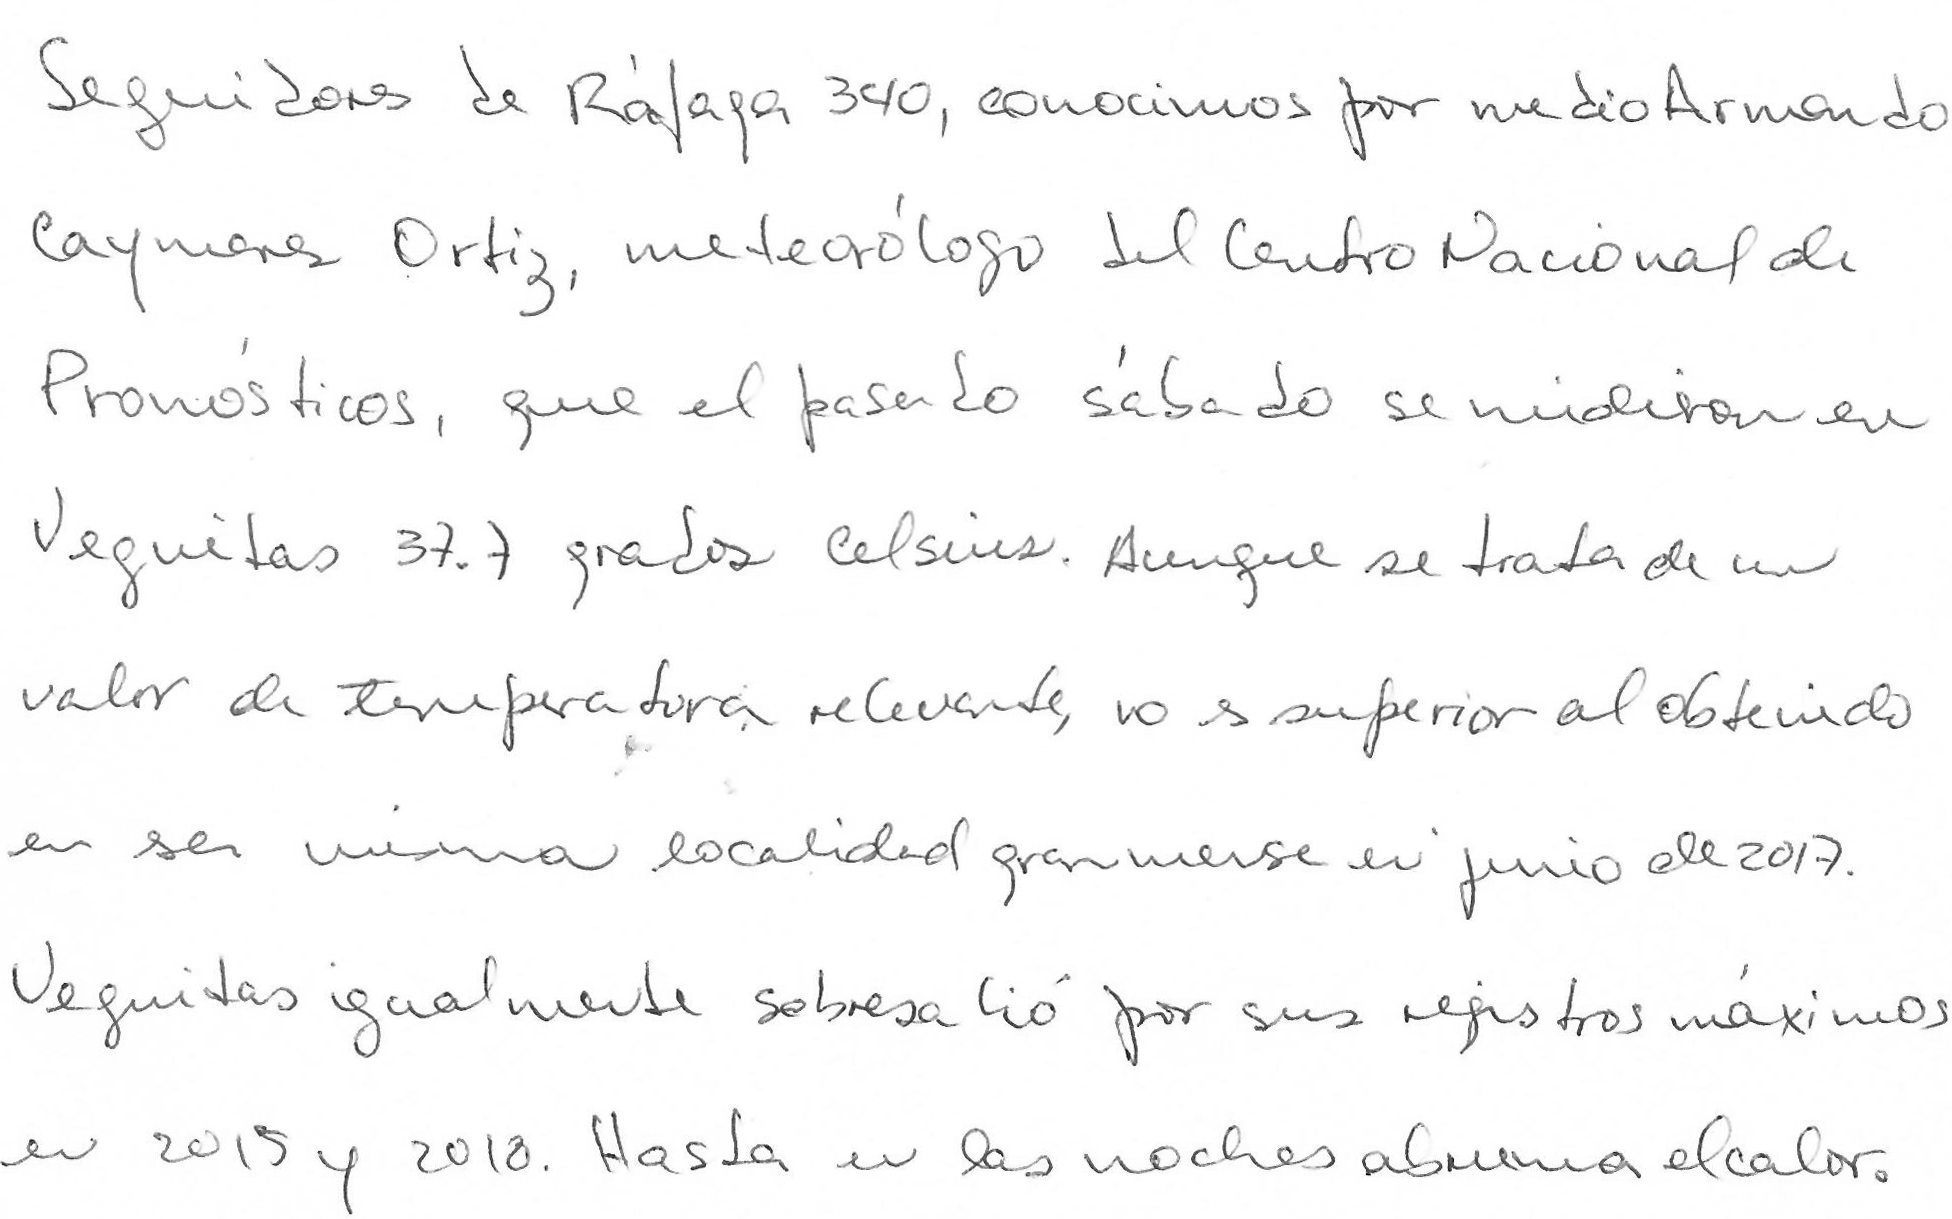 Seguidores de Ráfaga 340, conocimos por medio Armando
Caymares Ortiz, meteorólogo del Centro Nacional de
Pronósticos, que el pasado sábado se midieron en
Veguitas 37.7 grados Celsius. Aunque se trata de un
valor de temperatura relevante, no es superior al obtenido
en esa misma localidad granmense en junio de 2017.
Veguitas igualmente sobresalió por sus registros máximos
en 2015 y 2018. Hasta en las noches abruma el calor.